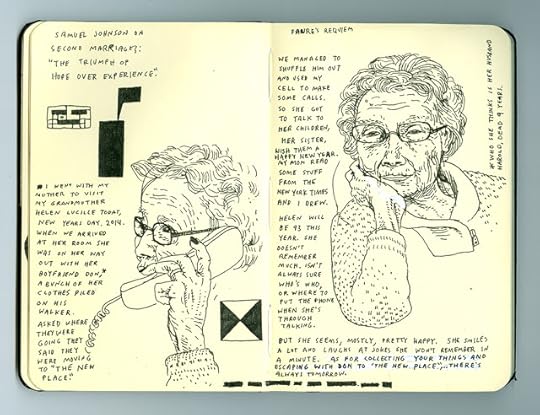 SAMUEL JOHNSON ON
SECOND MARRIAGES:
"THE TRIUMPH OF
HOPE OVER EXPERIENCE".
I WENT WITH MY
MOTHER TO VISIT
MY GRANDMOTHER
HELEN LUCILLE TODAY,
NEW YEARS DAY, 2014.
WHEN WE ARRIVED
AT HER ROOM SHE
WAS ON HER WAY
OUT WITH HER
BOYFRIEND DON,*
A BUNCH OF HER
CLOTHES PILED
ON HIS
WALKER.
ASKED WHERE
THEY WERE
GOING THEY
SAID THEY
WERE MOVING
TO "THE NEW
PLACE".
FAURE'S REQUIEM
WE MANAGED TO
SHUFFLE HIM OUT
AND USED MY
CELL TO MAKE
SOME CALLS.
SO SHE GOT
TO TALK TO
HER CHILDREN,
HER SISTER,
WISH THEM A
HAPPY NEW YEAR.
MY MOM READ
SOME STUFF
FROM THE
NEW YORK TIMES
AND I DREW.
HELEN WILL
BE 93 THIS
YEAR. SHE
DOESN'T
REMEMBER
MUCH, ISN'T
ALWAYS SURE
WHO'S WHO,
OR WHERE TO
PUT THE PHONE
WHEN SHE'S
THROUGH
TALKING.
BUT SHE SEEMS, MOSTLY, PRETTY HAPPY. SHE SMILES
A LOT AND LAUGHS AT JOKES SHE WON'T REMEMBER IN
A MINUTE. AS FOR COLLECTING YOUR THINGS AND
ESCAPING WITH DON TO "THE NEW PLACE"... THERE'S
ALWAYS TOMORROW.
*WHO SHE THINKS IS HER HUSBAND
HAROLD, DEAD 9 YEARS.